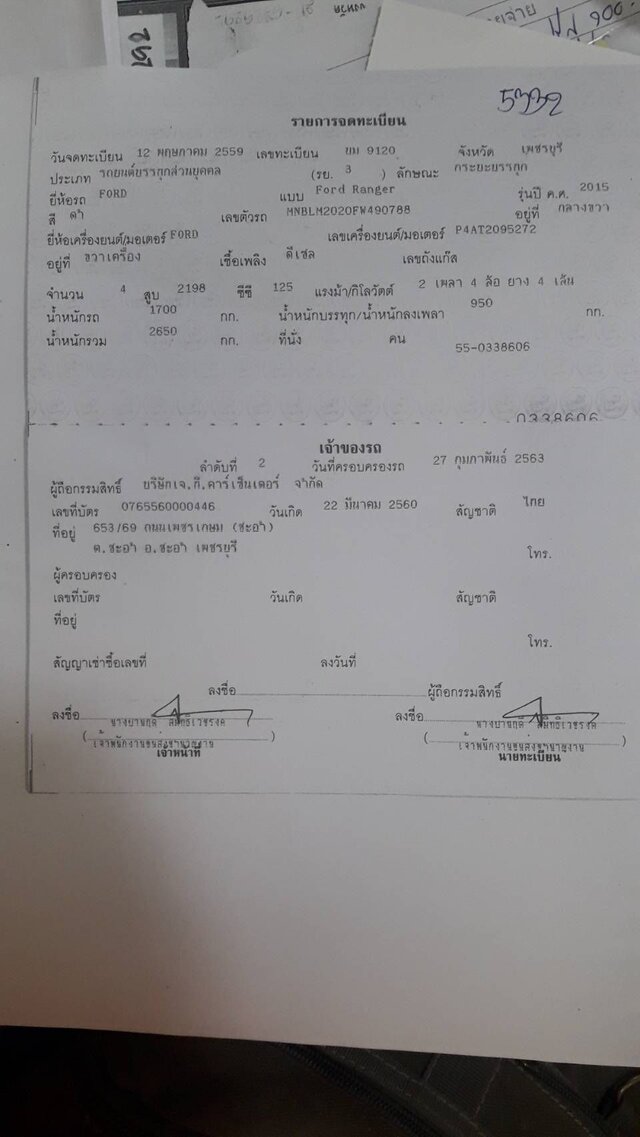 5332
รายการจดทะเบียน
วันจดทะเบียน 12 พฤษภาคม 2559 เลขทะเบียน ขม 9120 จังหวัด เพชรบุรี
ประเภท รถยนต์บรรทุกส่วนบุคคล (รย. 3 ) ลักษณะ กระบะบรรทุก
ยี่ห้อรถ FORD แบบ Ford Ranger รุ่นปี ค.ศ. 2015
สี ดำ เลขตัวรถ MNBLM2020FW490788 อยู่ที่ กลางขวา
ยี่ห้อเครื่องยนต์/มอเตอร์ FORD เลขเครื่องยนต์/มอเตอร์ P4AT2095272
อยู่ที่ ขวาเครื่อง เชื้อเพลิง ดีเซล เลขถังแก๊ส
จำนวน 4 สูบ 2198 ซีซี 125 แรงม้า/กิโลวัตต์ 2 เพลา 4 ล้อ ยาง 4 เส้น
น้ำหนักรถ 1700 กก. น้ำหนักบรรทุก/น้ำหนักลงเพลา 950 กก.
น้ำหนักรวม 2650 กก. ที่นั่ง คน 55-0338606
0338606
เจ้าของรถ
ลำดับที่ 2 วันที่ครอบครองรถ 27 กุมภาพันธ์ 2563
ผู้ถือกรรมสิทธิ์ บริษัทเจ.ที.คาร์เซ็นเตอร์ จำกัด
เลขที่บัตร 0765560000446 วันเกิด 22 มีนาคม 2560 สัญชาติ ไทย
ที่อยู่ 653/69 ถนนเพชรเกษม (ชะอำ)
ต.ชะอำ อ.ชะอำ เพชรบุรี
โทร.
ผู้ครอบครอง
เลขที่บัตร วันเกิด สัญชาติ
ที่อยู่
โทร.
สัญญาเช่าซื้อเลขที่ ลงวันที่
ลงชื่อ ผู้ถือกรรมสิทธิ์
ลงชื่อ ลงชื่อ
(เจ้าพนักงานขนส่งชำนาญงาน) (เจ้าพนักงานขนส่งชำนาญงาน)
เจ้าหน้าที่ นายทะเบียน